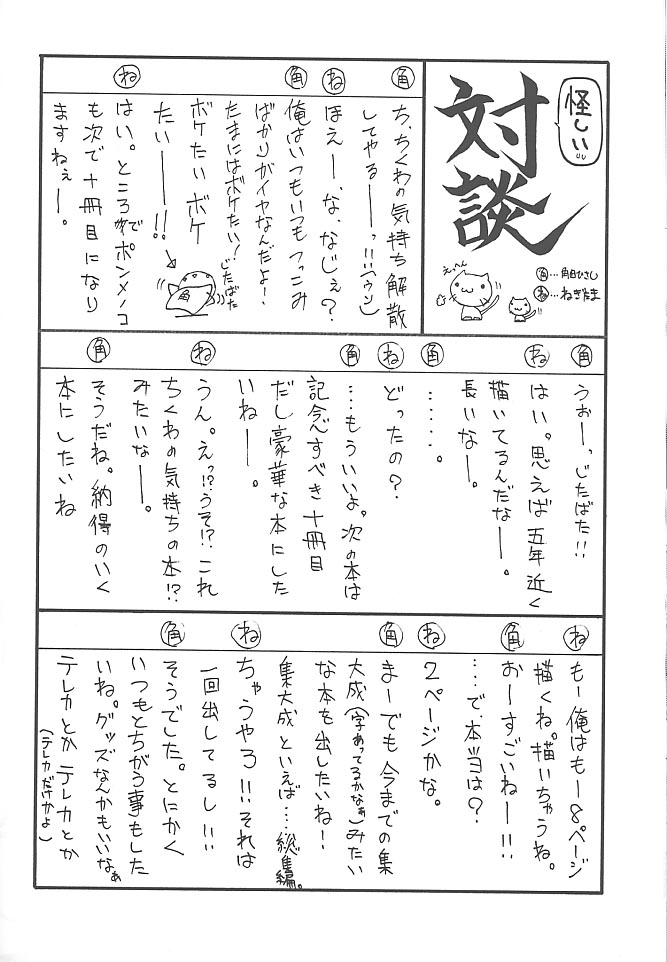 怪しい
対談
角…角日ひさし
ね…ねぎたま
えっへん
角
ち、ちくわの気持ち解散
してやるーっ!!(ウソ)
ね
ほえー、な、なじぇ?
角
俺はいつもいつもつっこみ
ばかりがイヤなんだよ!
たまにはボケたい!
じたばた
ボケたい ボケ
たいー!!
角
ね
はい。ところでポンメノコ
も次で十冊目になり
ますねぇー。
角
うぉーっじたばた!!
ね
はい。思えば五年近く
描いてるんだなー。
長いなー。
角
……。
ね
どったの?
角
…もういいよ。次の本は
記念すべき十冊目
だし豪華な本にした
いねー。
ね
うん。えっ!?うそ!?これ
ちくわの気持ちの本!?
みたいなー。
角
そうだね。納得のいく
本にしたいね
ね
もー俺はもー8ページ
描くね。描いちゃうね。
角
おーすごいねー!!
…で、本当は?
ね
2ページかな。
角
まーでも今までの集
大成(字あってるかなぁ)みたい
な本を出したいね!
集大成といえば…総集編。
ね
ちゃうやろ!!それは
一回出してるし!!
角
そうでした。とにかく
いつもとちがう事もした
いね。グッズなんかもいいなぁ
テレカとか テレカとか
(テレカだけかよ)